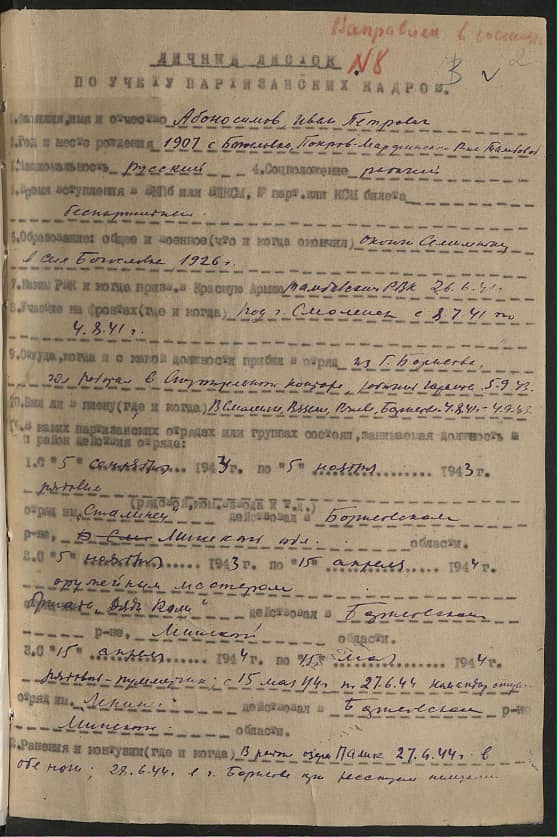 Направлен в
№8
В 2
ЛИЧНЫЙ ЛИСТОК
ПО УЧЕТУ ПАРТИЗАНСКИХ КАДРОВ.
1.Фамилия,имя и отчество Абоносимов Иван Петрович
2.Год и место рождения 1907 с Покрово-Марфинского
3.Национальность русский 4.Соцположение рабочий
5.Время вступления в ВКПб или ВЛКСМ, № парт.или КСМ билета
беспартийный
6.Образование: общее и военное(что и когда окончил) оконч
в селе 1926 г.
7.Каким РВК и когда призв. в Красную Армию Тамбовским РВК 26.6.41г.
8.Участие на фронтах(где и когда) под г. Смоленск с 8.7.41 по
4.8.41 г.
9.Откуда,когда и с какой должности прибыл в отряд из г. Борисова,
где работал в конторе, рабочим 5.9.43.
10.Был ли в плену(где и когда) В Смоленске, Борисове 4.8.41 - 4.9.43
11.В каких партизанских отрядах или группах состоял,занимаемая должность и
и район действия отряда:
1.С "5" сентября 1943 г. по "5" ноября 1943 г.
рядовые
(рядовой,ком.взвода и т.д.)
отряд им. Сталинец действовал в Борисовском
р-не, Минской обл. области.
2.С "5" ноября 1943 г. по "15" апреля 1944 г.
оружейным мастером
Бригаде "Дяди Коли" действовал в Борисовском
р-но, Минской области.
3.С "15" апреля 1944 г. по "15" мая 1944 г.
рядовые-пулеметчик; с 15 мая 1944 по 27.6.44 командир
отряд им. Ленина действовал в Борисовском р-но
Минской области.
12.Ранения и контузии(где и когда) В районе озера Палик 27.6.44 г. в
обе ноги; 28.6.44 г. в г. Борисове при